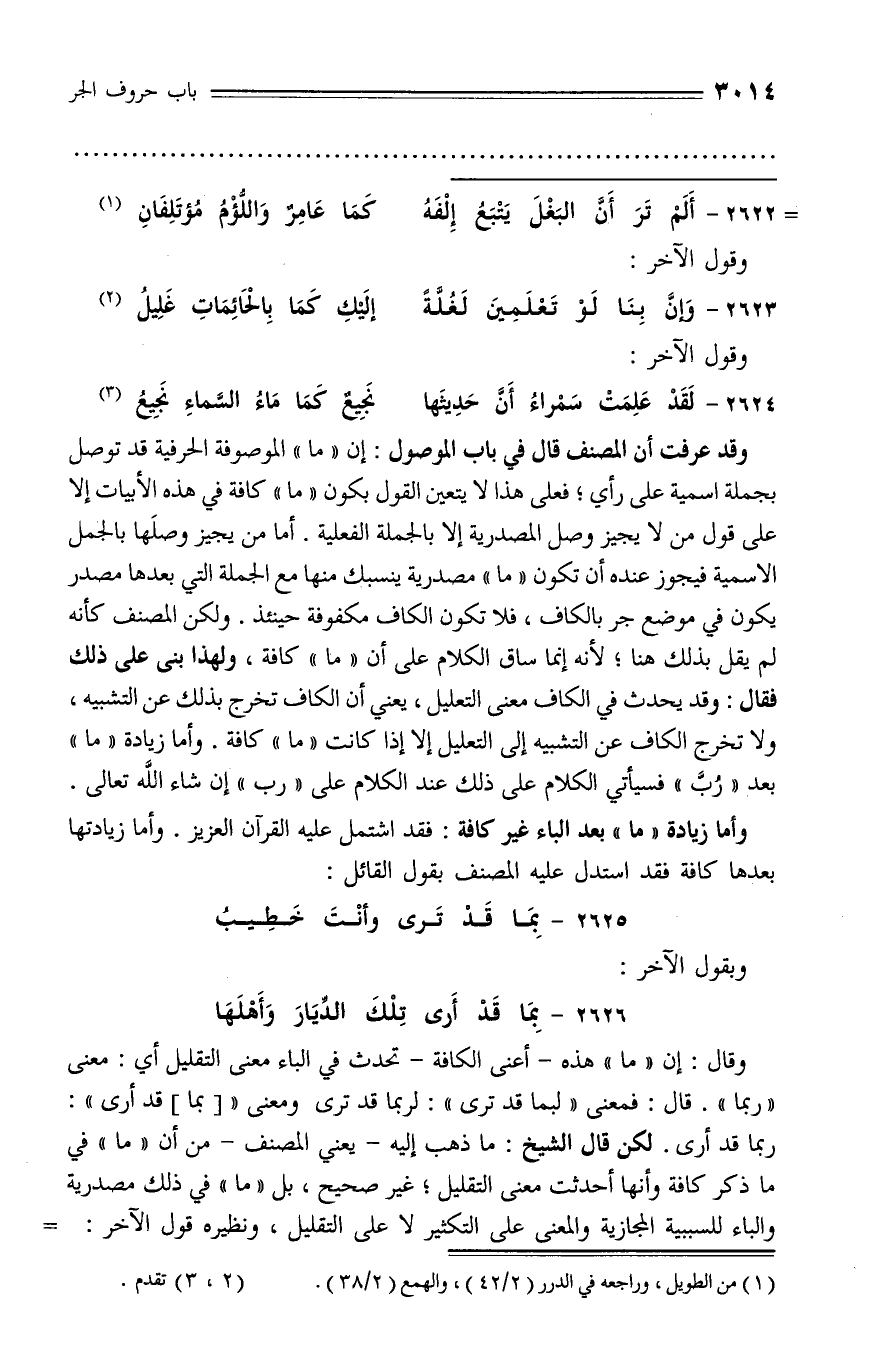 ٣٠١٤ باب حروف الجر
= ٢٦٢٢ - أَلَمْ تَرَ أَنَّ البَغْلَ يَتْبَعُ إِلْفَهُ كَمَا عَامِرٌ وَاللُّؤْمُ مُؤتَلِفَانِ (١)
وقول الآخر :
٢٦٢٣ - وَإنَّ بِنَا لَوْ تَعْلَمِينَ لَغُلَّةً إلَيْكِ كَمَا بِالْحَائِمَاتِ غَلِيلُ (٢)
وقول الآخر :
٢٦٢٤ - لَقَدْ عَلِمَتْ سَمْراءُ أَنَّ حَدِيثَها نَجِيعٌ كَمَا مَاءُ السَّماءِ نَجِيعُ (٣)
وقد عرفت أن المصنف قال في باب الموصول : إن « ما » الموصوفة الحرفية قد توصل
بجملة اسمية على رأي ؛ فعلى هذا لا يتعين القول بكون « ما » كافة في هذه الأبيات إلا
على قول من لا يجيز وصل المصدرية إلا بالجملة الفعلية . أما من يجيز وصلَها بالجمل
الاسمية فيجوز عنده أن تكون « ما » مصدرية ينسبك منها مع الجملة التي بعدها مصدر
يكون في موضع جر بالكاف ، فلا تكون الكاف مكفوفة حينئذ . ولكن المصنف كأنه
لم يقل بذلك هنا ؛ لأنه إنما ساق الكلام على أن « ما » كافة ، ولهذا بنى على ذلك
فقال : وقد يحدث في الكاف معنى التعليل ، يعني أن الكاف تخرج بذلك عن التشبيه ،
ولا تخرج الكاف عن التشبيه إلى التعليل إلا إذا كانت « ما » كافة . وأما زيادة « ما »
بعد « رُبَّ » فسيأتي الكلام على ذلك عند الكلام على « رب » إن شاء اللَّه تعالى .
وأما زيادة « ما » بعد الباء غير كافة : فقد اشتمل عليه القرآن العزيز . وأما زيادتها
بعدها كافة فقد استدل عليه المصنف بقول القائل :
٢٦٢٥ - بِمَا قَدْ تَرى وأنْتَ خَطِيبُ
وبقول الآخر :
٢٦٢٦ - بِمَا قَدْ أَرى تِلْكَ الدِّيَارَ وَأَهْلَهَا
وقال : إن « ما » هذه - أعنى الكافة - تحدث في الباء معنى التقليل أي : معنى
« ربما » . قال : فمعنى « لبما قد ترى » : لربما قد ترى ومعنى « [ بما ] قد أرى » :
ربما قد أرى . لكن قال الشيخ : ما ذهب إليه - يعني المصنف - من أن « ما » في
ما ذكر كافة وأنها أحدثت معنى التقليل ؛ غير صحيح ، بل « ما » في ذلك مصدرية
والباء للسببية المجازية والمعنى على التكثير لا على التقليل ، ونظيره قول الآخر : =
(١) من الطويل ، وراجعه في الدرر ( ٤٢/٢ ) ، والهمع ( ٣٨/٢ ) . (٢ ، ٣) تقدم .